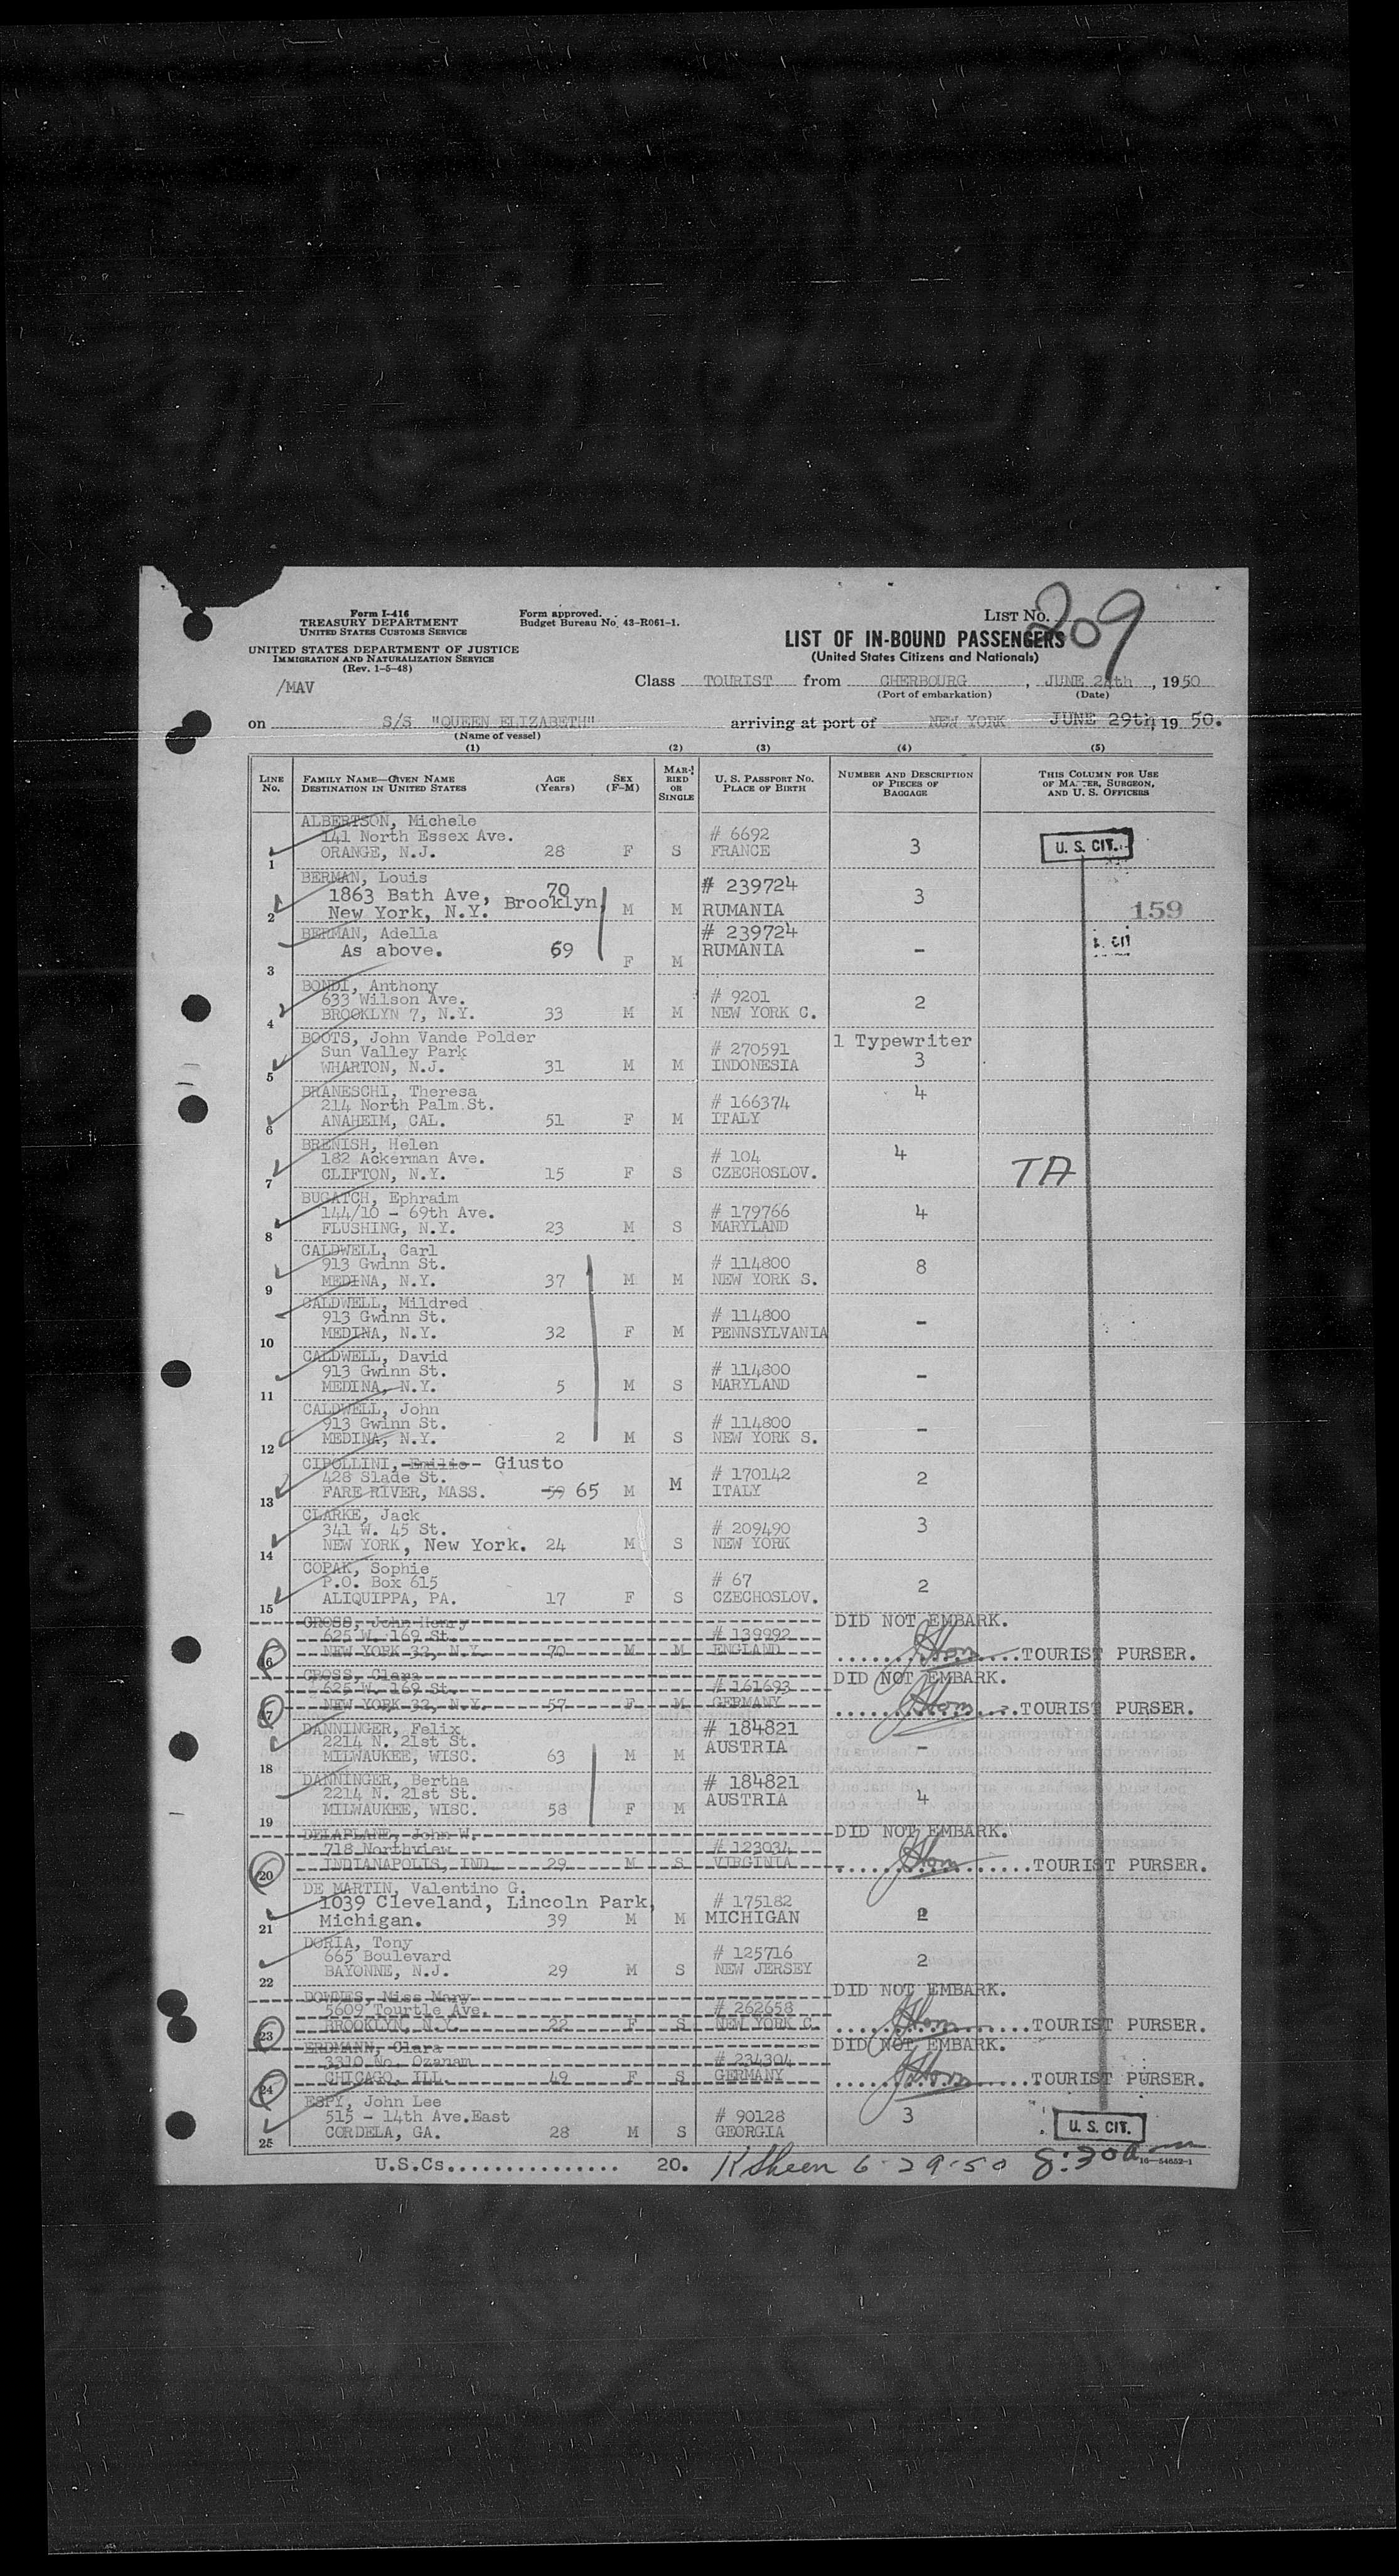 Form I-416
TREASURY DEPARTMENT
UNITED STATES CUSTOMS SERVICE
Form approved.
Budget Bureau No. 43-R061-1.
LIST No. 209
LIST OF IN-BOUND PASSENGERS
(United States Citizens and Nationals)
UNITED STATES DEPARTMENT OF JUSTICE
IMMIGRATION AND NATURALIZATION SERVICE
(Rev. 1-5-48)
/MAV
Class TOURIST from CHERBOURG, JUNE 24th, 1950
(Port of embarkation) (Date)
on S/S "QUEEN ELIZABETH" arriving at port of NEW YORK JUNE 29th, 19 50.
(Name of vessel)
(1) (2) (3) (4) (5)
LINE No. FAMILY NAME—GIVEN NAME DESTINATION IN UNITED STATES AGE (Years) SEX (F-M) MARRIED OR SINGLE U. S. PASSPORT No. PLACE OF BIRTH NUMBER AND DESCRIPTION OF PIECES OF BAGGAGE THIS COLUMN FOR USE OF MASTER, SURGEON, AND U. S. OFFICERS
ALBERTSON, Michele
141 North Essex Ave. # 6692
1 ORANGE, N.J. 28 F S FRANCE 3 U. S. CIT.
BERMAN, Louis
1863 Bath Ave, Brooklyn, 70 # 239724 3
2 New York, N.Y. M M RUMANIA 159
BERMAN, Adella # 239724
As above. 69 RUMANIA -
3 F M
BONDI, Anthony
633 Wilson Ave. # 9201 2
4 BROOKLYN 7, N.Y. 33 M M NEW YORK C.
BOOTS, John Vande Polder 1 Typewriter
Sun Valley Park # 270591 3
5 WHARTON, N.J. 31 M M INDONESIA
BRANESCHI, Theresa 4
214 North Palm St. # 166374
6 ANAHEIM, CAL. 51 F M ITALY
BRENISH, Helen 4
182 Ackerman Ave. # 104
7 CLIFTON, N.Y. 15 F S CZECHOSLOV. TA
BUGATCH, Ephraim
144/10 - 69th Ave. # 179766 4
8 FLUSHING, N.Y. 23 M S MARYLAND
CALDWELL, Carl
913 Gwinn St. # 114800 8
9 MEDINA, N.Y. 37 M M NEW YORK S.
CALDWELL, Mildred
913 Gwinn St. # 114800 -
10 MEDINA, N.Y. 32 F M PENNSYLVANIA
CALDWELL, David
913 Gwinn St. # 114800 -
11 MEDINA, N.Y. 5 M S MARYLAND
CALDWELL, John
913 Gwinn St. # 114800 -
12 MEDINA, N.Y. 2 M S NEW YORK S.
CIPOLLINI, Emilio - Giusto
428 Slade St. M # 170142 2
13 FARE RIVER, MASS. 59 65 M ITALY
CLARKE, Jack 3
341 W. 45 St. # 209490
14 NEW YORK, New York. 24 M S NEW YORK
COPAK, Sophie
P.O. Box 615 # 67 2
15 ALIQUIPPA, PA. 17 F S CZECHOSLOV.
GROSS, John Henry DID NOT EMBARK.
625 W. 169 St. # 139992
16 NEW YORK 32, N.Y. 70 M M ENGLAND TOURIST PURSER.
GROSS, Clara DID NOT EMBARK.
625 W. 169 St. # 161693
17 NEW YORK 32, N.Y. 57 F M GERMANY TOURIST PURSER.
DANNINGER, Felix # 184821
2214 N. 21st St. AUSTRIA -
18 MILWAUKEE, WISC. 63 M M
DANNINGER, Bertha # 184821
2214 N. 21st St. AUSTRIA 4
19 MILWAUKEE, WISC. 58 F M
DELAPLANE, John W. DID NOT EMBARK.
718 Northview # 123034
20 INDIANAPOLIS, IND. 29 M S VIRGINIA TOURIST PURSER.
DE MARTIN, Valentino G.
1039 Cleveland, Lincoln Park, # 175182
21 Michigan. 39 M M MICHIGAN 2
DORIA, Tony
665 Boulevard # 125716 2
22 BAYONNE, N.J. 29 M S NEW JERSEY
DOWNES, Miss Mary DID NOT EMBARK.
5609 Tourtle Ave. # 262658
23 BROOKLYN, N.Y. 22 F S NEW YORK C. TOURIST PURSER.
ERDMANN, Clara DID NOT EMBARK.
3310 No. Ozanam # 234304
24 CHICAGO, ILL. 49 F S GERMANY TOURIST PURSER.
ESPY, John Lee 3
515 - 14th Ave.East # 90128
25 CORDELA, GA. 28 M S GEORGIA U. S. CIT.
U.S.Cs................ 20. K Sheen 6-29-50 8:30am 16—54652-1